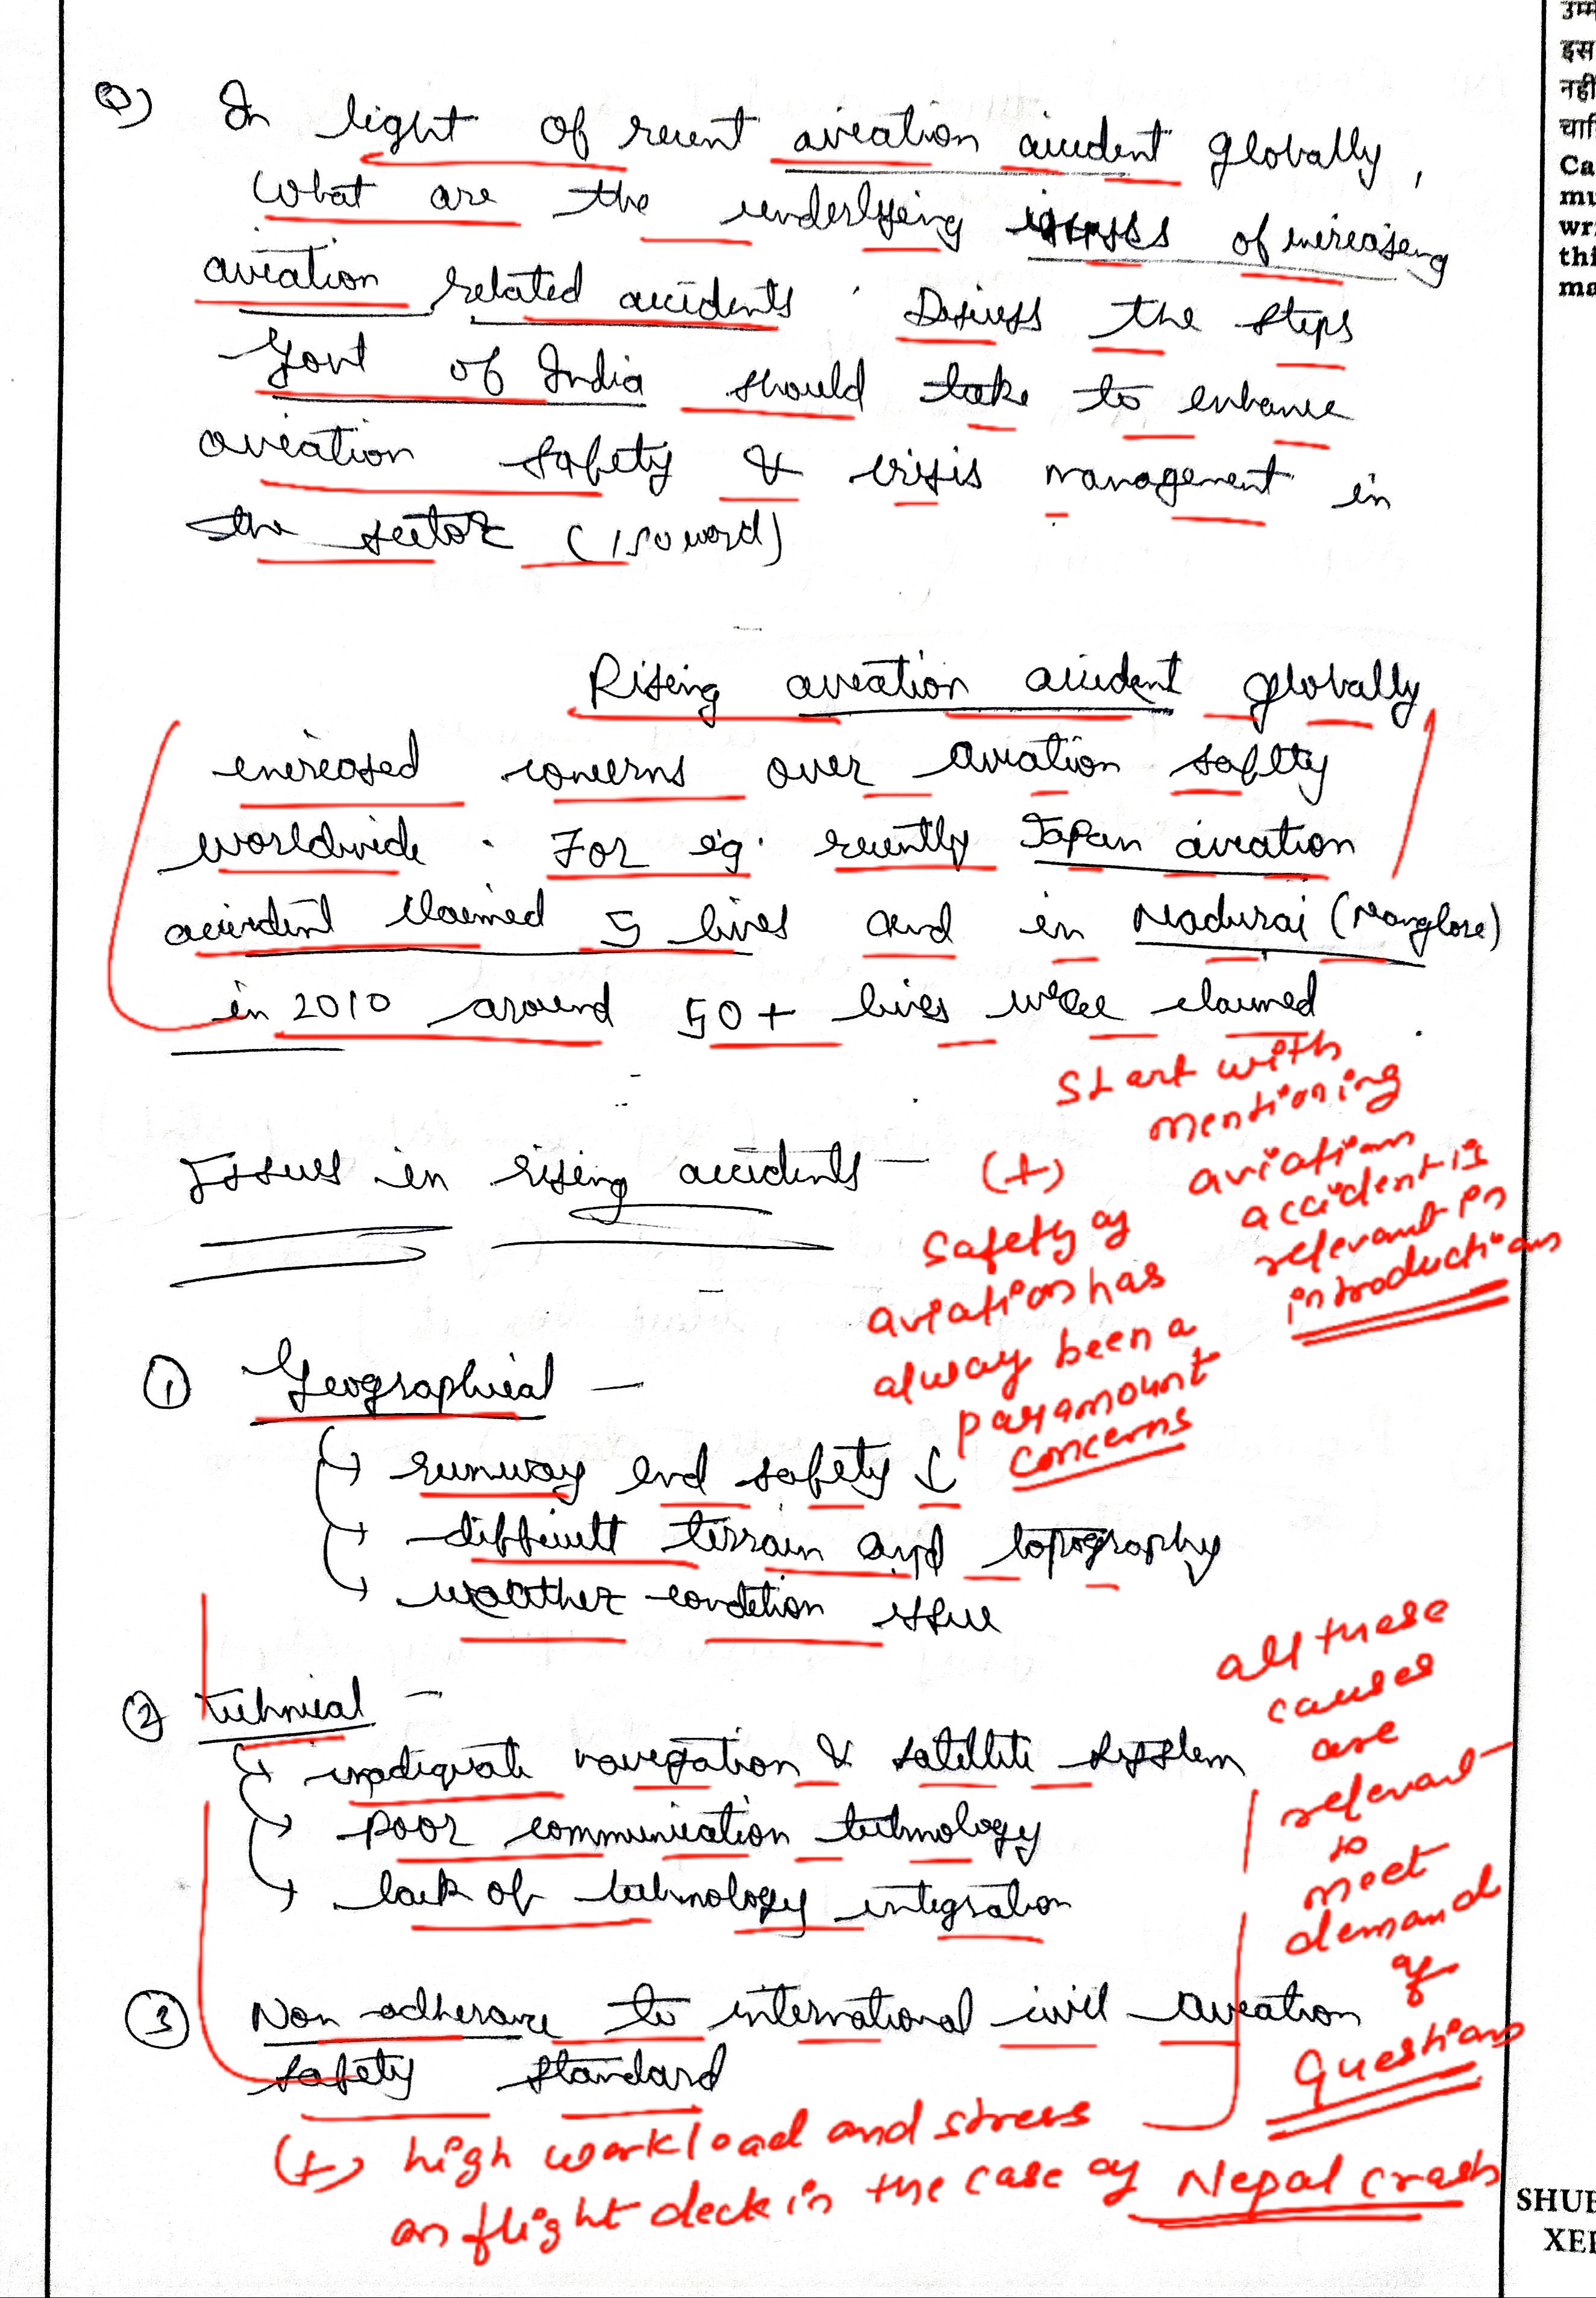 Q) In light of recent aviation accident globally,
What are the underlying issues of increasing
aviation related accidents. Discuss the steps
Govt of India should take to enhance
aviation safety & crisis management in
the sector (150 word)
Rising aviation accident globally
increased concerns over aviation safety
worldwide. For eg. recently Japan aviation
accident claimed 5 lives and in Madurai (Manglore)
in 2010 around 50+ lives were claimed.
Start with
mentioning
aviation
accident is
relevant in
introductions
Issues in rising accidents —
(+)
Safety of
aviation has
alway been a
paramount
concerns
① Geographical —
↳ runway end safety ↓
↳ difficult terrain and topography
↳ weather condition issue
② technical —
↳ inadequate navigation & satellite system
↳ poor communication technology
↳ lack of technology integration
all these
causes
are
relevant
to
meet
demand
of
Questions
③ Non adherance to international civil aviation
safety standard
(+) high workload and stress
on flight deck in the case of Nepal crash
उम्मी
इस
नहीं
चाहि
Ca
mu
wri
thi
ma
SHUB
XEI